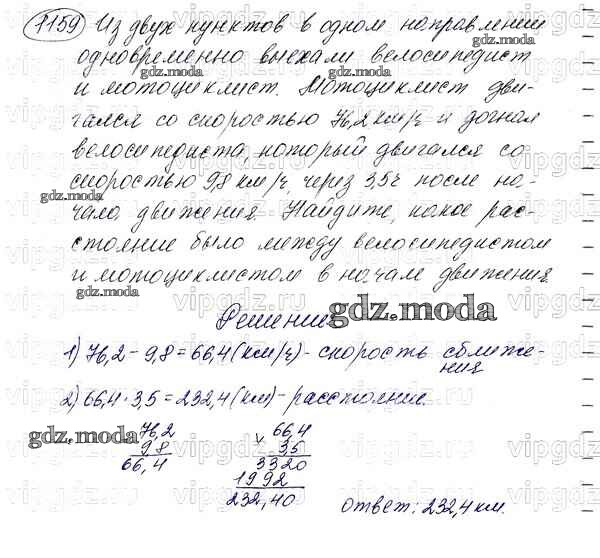 1159 Из двух пунктов в одном направлении
одновременно выехали велосипедист
и мотоциклист. Мотоциклист дви-
гался со скоростью 76,2 км/ч и догнал
велосипедиста, который двигался со
скоростью 9,8 км/ч, через 3,5 ч после на-
чала движения. Найдите, какое рас-
стояние было между велосипедистом
и мотоциклистом в начале движения.
Решение
1) 76,2 - 9,8 = 66,4 (км/ч) - скорость сближе-
ния
2) 66,4 · 3,5 = 232,4 (км) - расстояние.
76,2
9,8
66,4
66,4
× 3,5
3320
1992
232,40
ответ: 232,4 км.
gdz.moda
gdz.moda
gdz.moda
gdz.moda
gdz.moda
gdz.moda
gdz.moda
vipgdz.ru